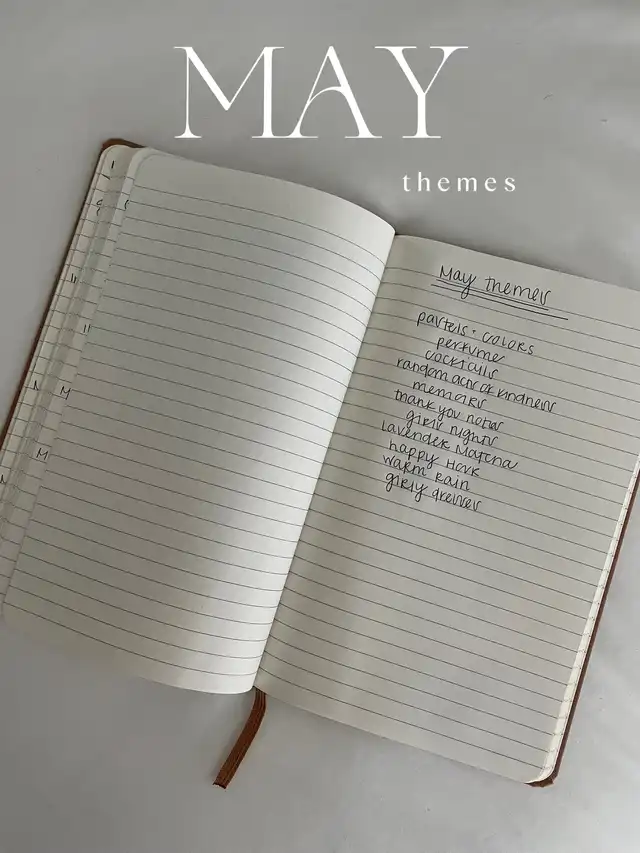 MAY
themes
May themes
pastels + colors
perfume
cocktails
random acts of kindness
memoirs
thank you notes
girls nights
lavender matcha
happy hour
warm rain
girly dresses